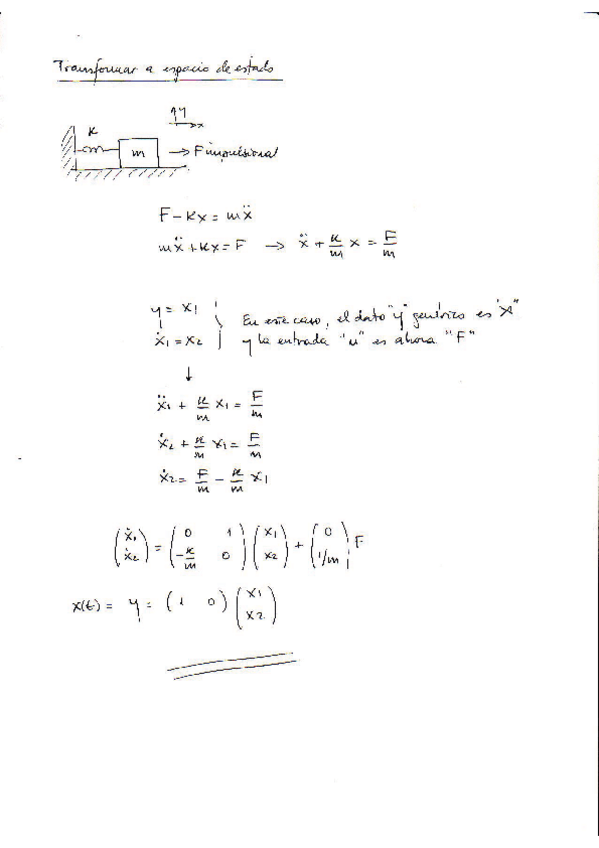 Transformar a espacio de estado
y
x
K
m
F impulsional
F - Kx = mẍ
mẍ + Kx = F → ẍ + K/m x = F/m
y = x1
ẋ1 = x2
En este caso, el dato "y" genérico es "x"
y la entrada "u" es ahora "F"
↓
ẍ1 + K/m x1 = F/m
ẋ2 + K/m x1 = F/m
ẋ2 = F/m - K/m x1
(ẋ1 ẋ2) = (0 1 -K/m 0) (x1 x2) + (0 1/m) F
x(t) = y = (1 0) (x1 x2)